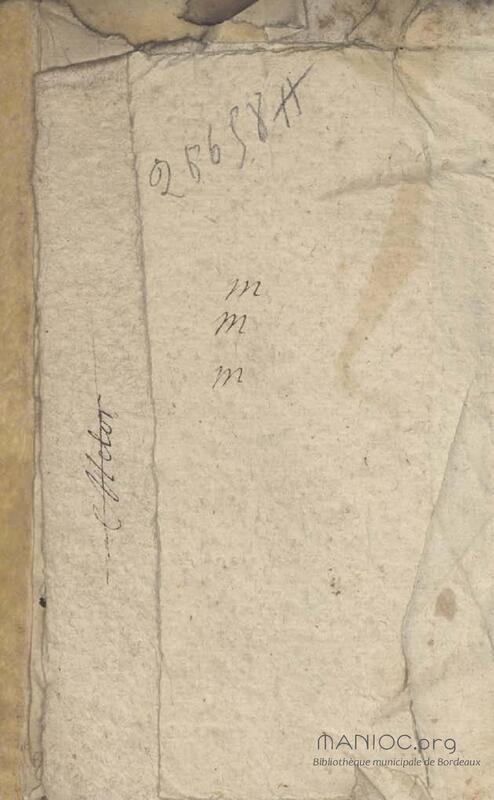 25658 H
m
m
m
MANIOC.org
Bibliothèque municipale de Bordeaux